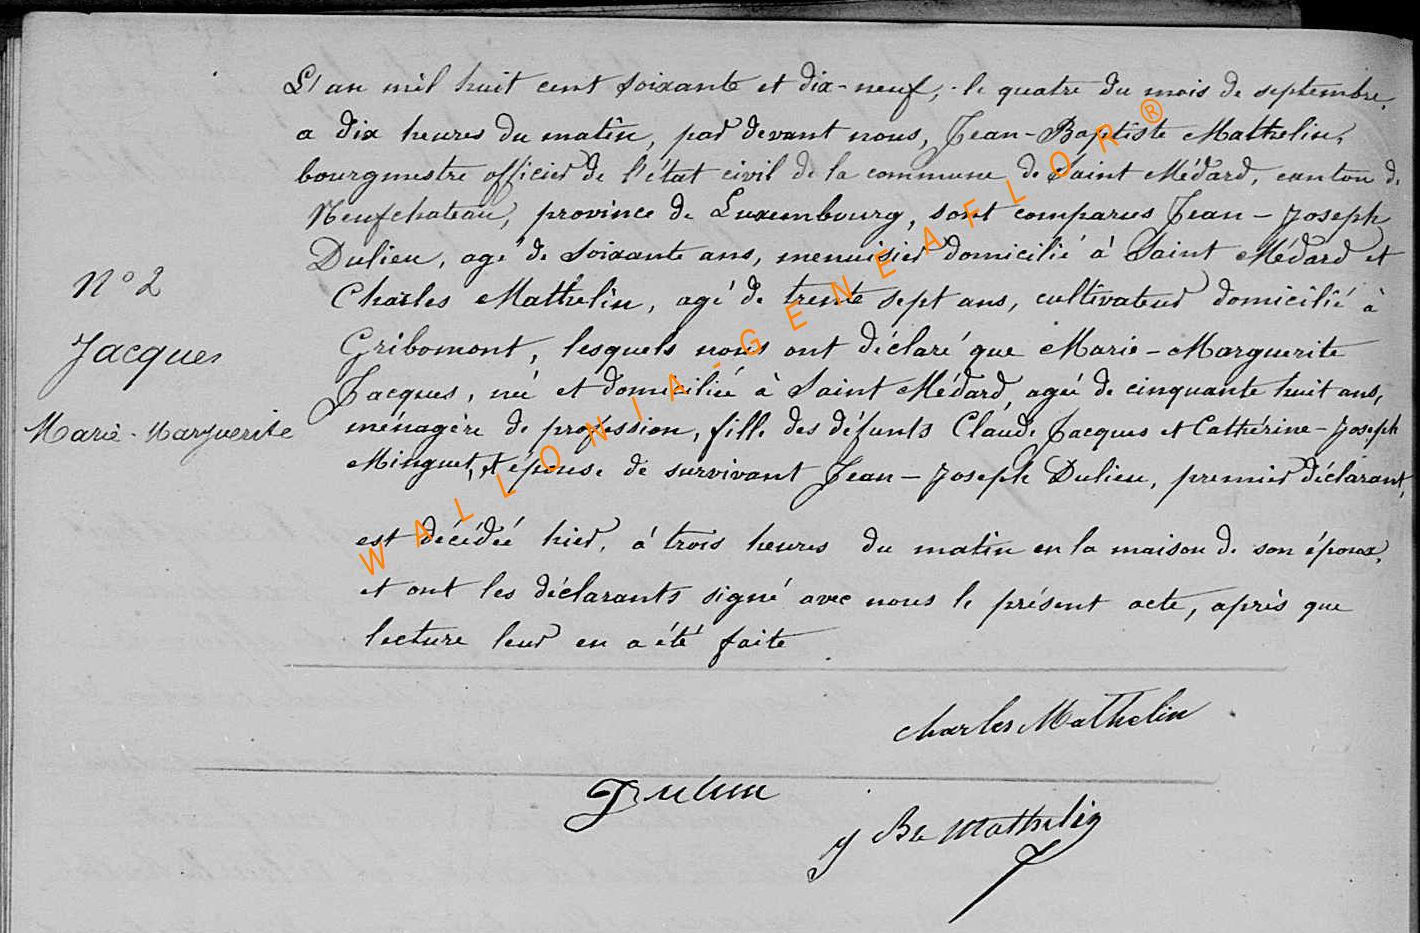 L'an mil huit cent soixante et dix-neuf, le quatre du mois de septembre,
a dix heures du matin, par devant nous, Jean-Baptiste Mathelin,
bourgmestre officier de l'état civil de la commune de Saint Médard, canton de
Neufchateau, province de Luxembourg, sont comparus Jean-Joseph
Dulieu, agé de soixante ans, menuisier domicilié à Saint Médard et
N° 2
Charles Mathelin, agé de trente sept ans, cultivateur domicilié à
Jacques
Gribomont, lesquels nous ont déclaré que Marie-Marguerite
Jacques, né et domiciliée à Saint Médard, agée de cinquante huit ans,
Marie-Marguerite
ménagère de profession, fille des défunts Claude Jacques et Cathérine-Joseph
Minguet, et épouse de survivant Jean-Joseph Dulieu, premier déclarant,
est décédée hier, à trois heures du matin en la maison de son époux,
et ont les déclarants signé avec nous le présent acte, après que
lecture leur en a été faite
Charles Mathelin
Dulieu
J Bte Mathelin
WALLONIA-GENEAFLOR®